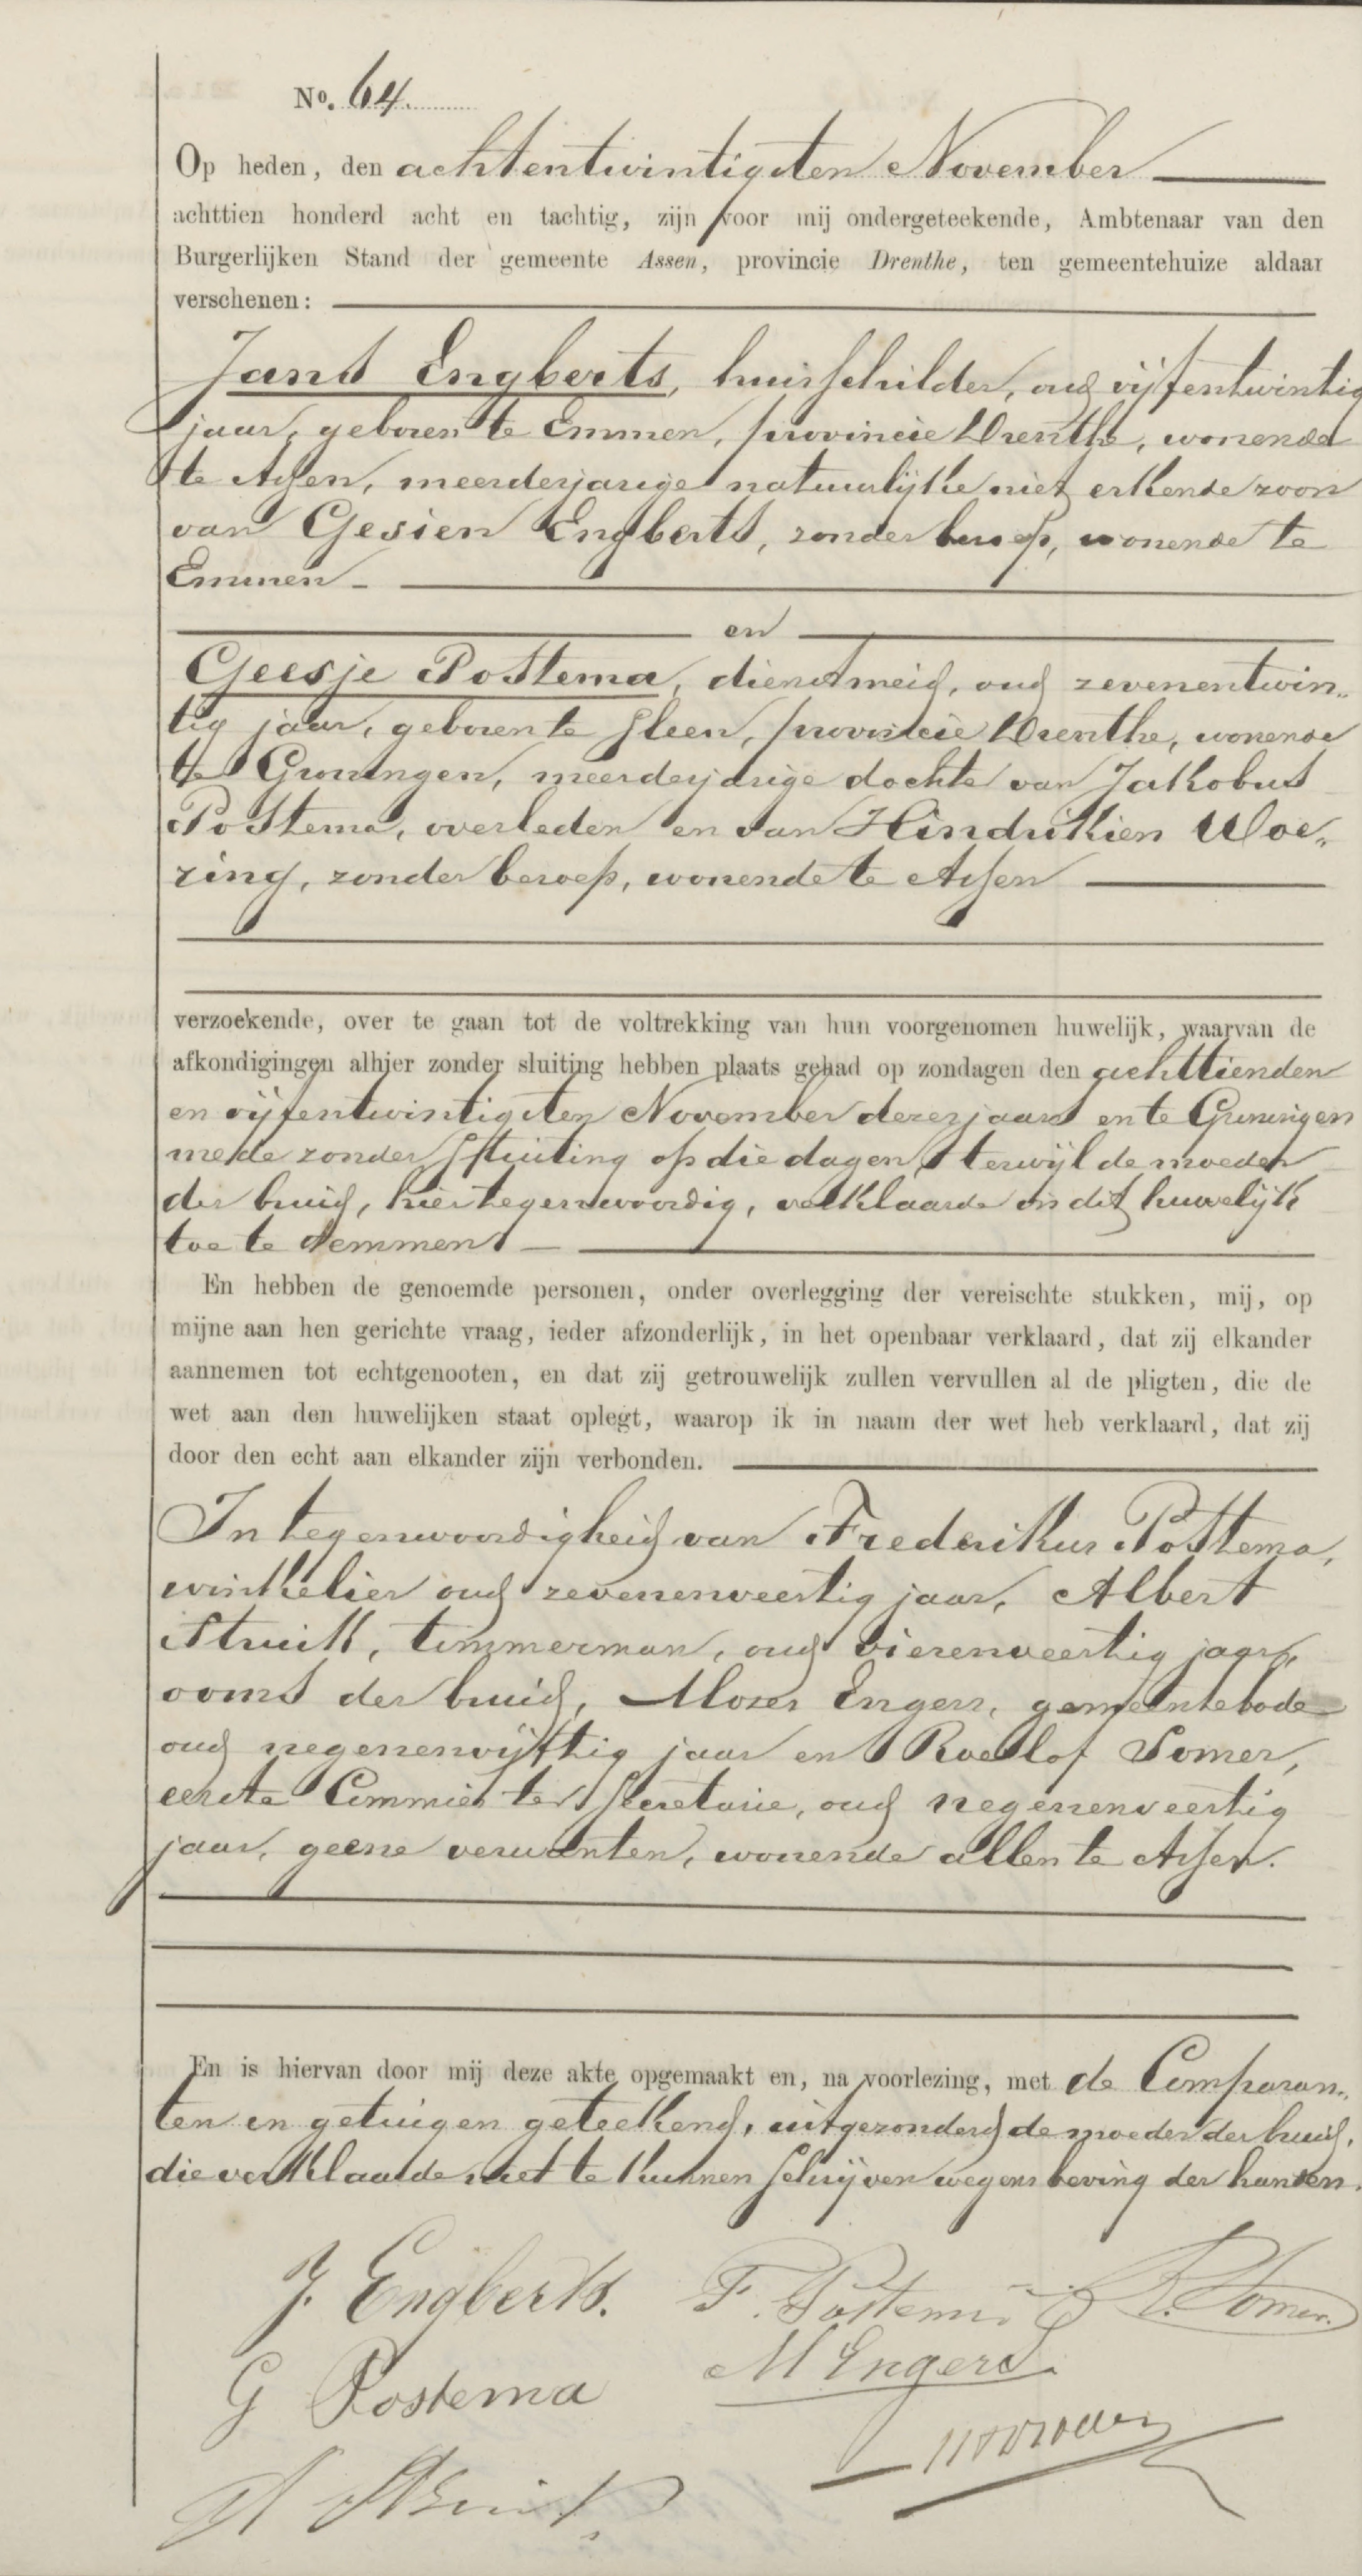 No. 64.
Op heden, den achtentwintigsten November
achttien honderd acht en tachtig, zijn voor mij ondergeteekende, Ambtenaar van den
Burgerlijken Stand der gemeente Assen, provincie Drenthe, ten gemeentehuize aldaar
verschenen:
Jans Engberts, huisschilder, oud vijfentwintig
jaar, geboren te Emmen, provincie Drenthe, wonende
te Assen, meerderjarige natuurlijke niet erkende zoon
van Gesien Engberts, zonder beroep, wonende te
Emmen
en
Geesje Postema, dienstmeid, oud zevenentwin„
tig jaar, geboren te Sleen, provincie Drenthe, wonende
te Groningen, meerderjarige dochter van Jakobus
Postema, overleden en van Hindrikien Woe„
zing, zonder beroep, wonende te Assen
verzoekende, over te gaan tot de voltrekking van hun voorgenomen huwelijk, waarvan de
afkondigingen alhier zonder sluiting hebben plaats gehad op zondagen den achttienden
en vijfentwintigsten November dezes jaars en te Groningen
mede zonder stuiting op die dagen, terwijl de moeder
der bruid, hier tegenwoordig, verklaarde in dit huwelijk
toe te stemmen
En hebben de genoemde personen, onder overlegging der vereischte stukken, mij, op
mijne aan hen gerichte vraag, ieder afzonderlijk, in het openbaar verklaard, dat zij elkander
aannemen tot echtgenooten, en dat zij getrouwelijk zullen vervullen al de pligten, die de
wet aan den huwelijken staat oplegt, waarop ik in naam der wet heb verklaard, dat zij
door den echt aan elkander zijn verbonden.
In tegenwoordigheid van Frederikus Postema,
winkelier oud zevenenveertig jaar, Albert
Struik, timmerman, oud vierenveertig jaar,
ooms der bruid, Mozes Engers, gemeentebode
oud negenenvijftig jaar en Roelof Somer,
eerste Commies ter Secretarie, oud negenenveertig
jaar, geene verwanten, wonende allen te Assen.
En is hiervan door mij deze akte opgemaakt en, na voorlezing, met de Comparan„
ten en getuigen geteekend, uitgezonderd de moeder der bruid,
die verklaarde niet te kunnen schrijven wegens beving der handen.
J. Engberts. F. Postema R. Somer.
G Postema M Engers
A Struik